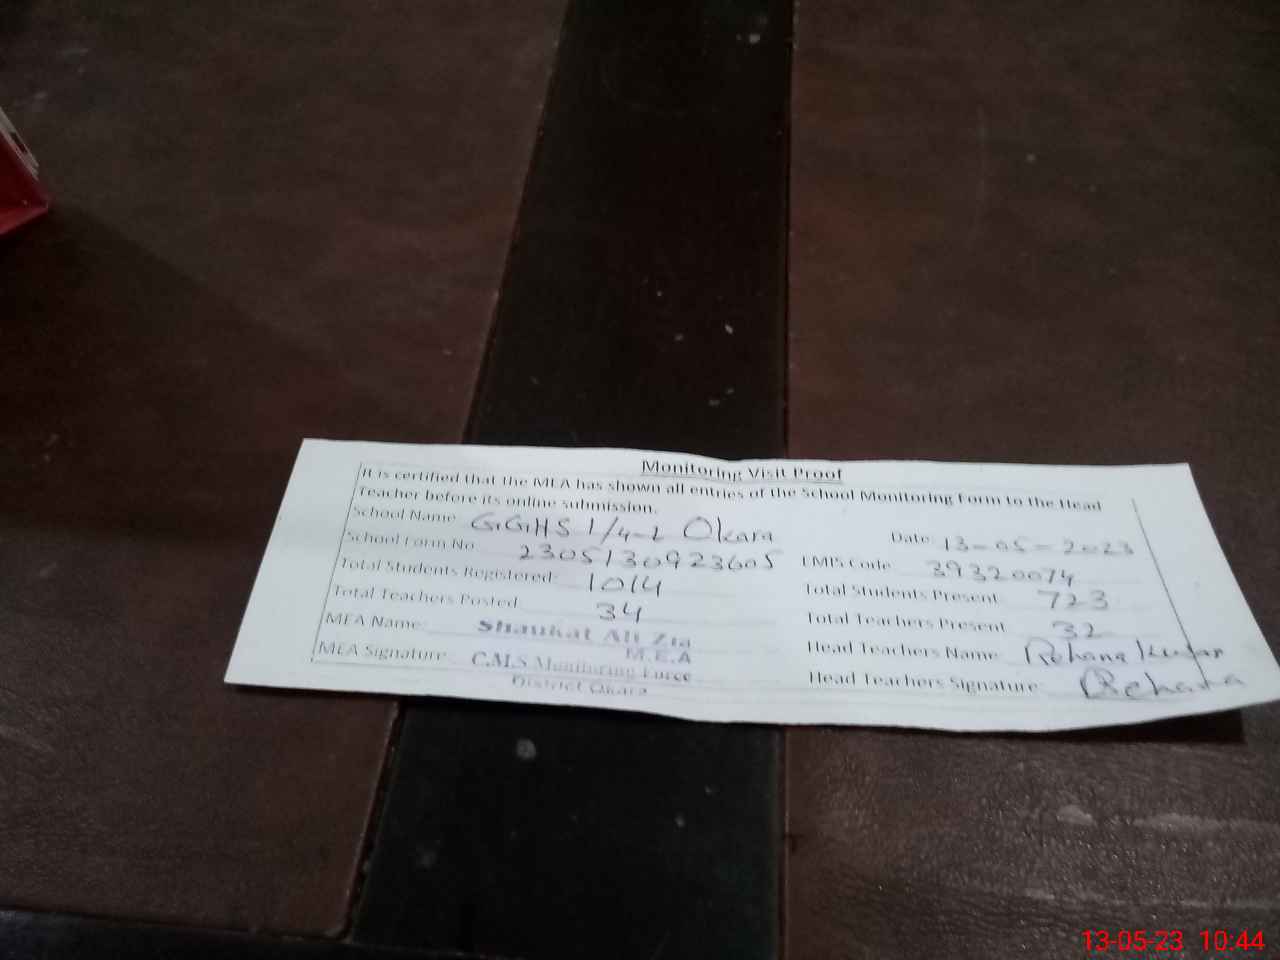 Monitoring Visit Proof
It is certified that the MEA has shown all entries of the School Monitoring Form to the Head
Teacher before its online submission.
School Name: GGHS 1/4-L Okara Date: 13-05-2023
School Form No 2305130923605 EMIS Code 39320074
Total Students Registered: 1014 Total Students Present 723
Total Teachers Posted 34 Total Teachers Present 32
MEA Name: Shaukat Ali Zia Head Teachers Name Rehana
M.E.A
MEA Signature: C.M.S Monitoring Force Head Teachers Signature Rehana
District Okara
13-05-23 10:44